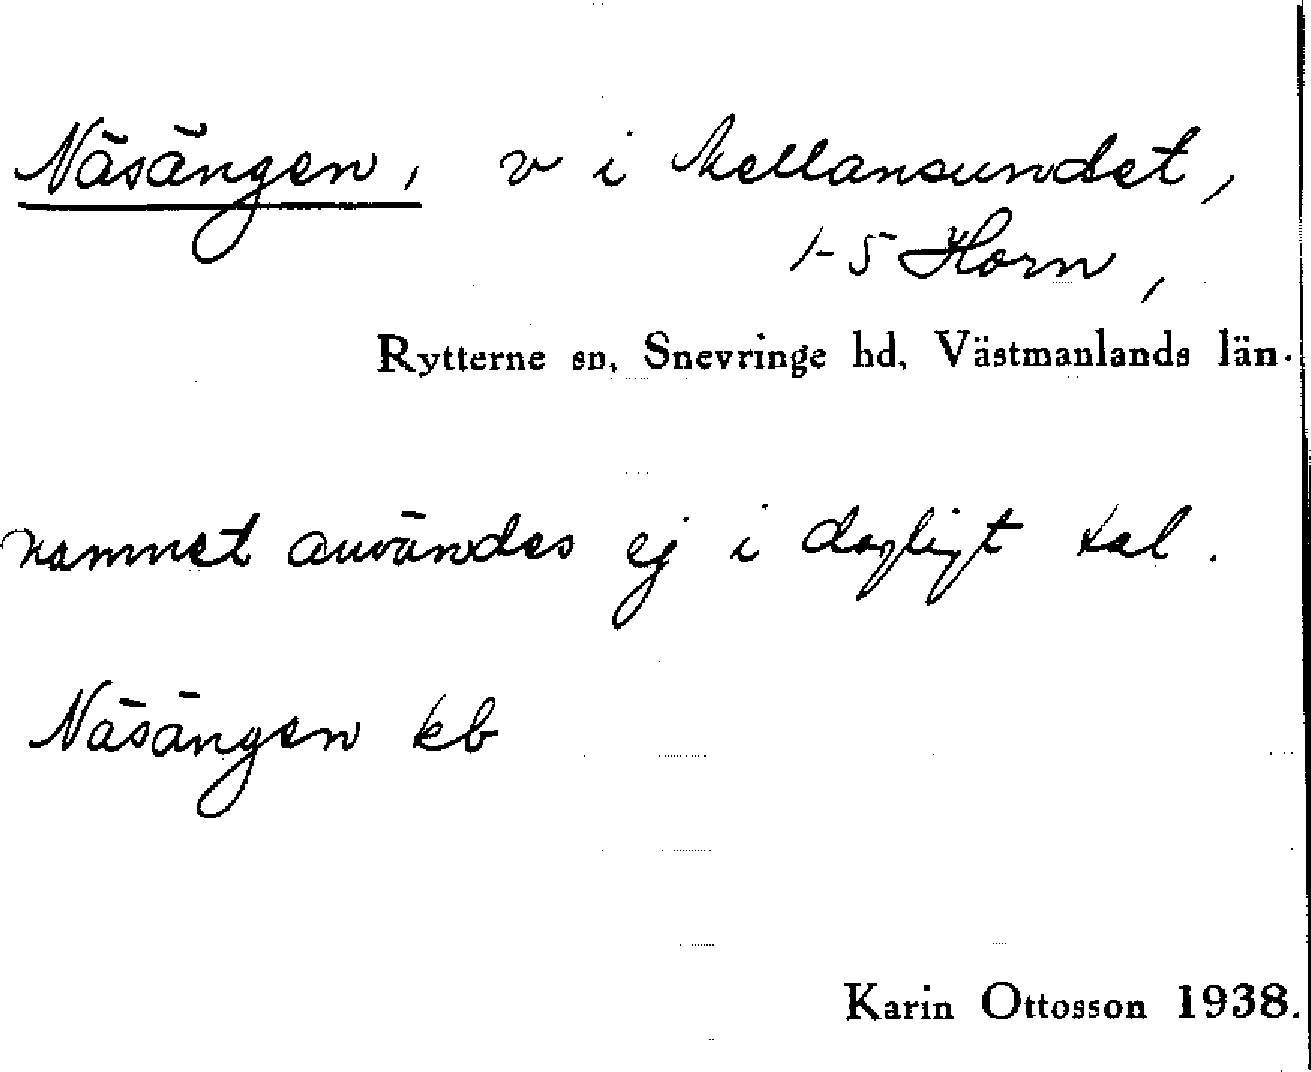 Näsängen, v i Mellansundet,
1-5 Horn,
Rytterne sn, Snevringe hd, Västmanlands län.
namnet användes ej i dagligt tal.
Näsängen kb
Karin Ottosson 1938.